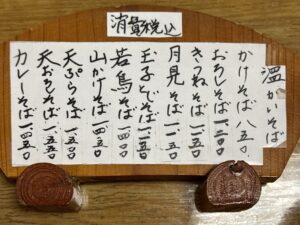 消費税込
温かいそば
かけそば 八五〇
おろしそば 一、一〇〇
きつねそば 一、一五〇
月見そば 一、一五〇
玉子とじそば 一、一五〇
若鳥そば 一、三五〇
山かけそば 一、四五〇
天ぷらそば 一、五五〇
天おろしそば
カレーそば 一、四五〇